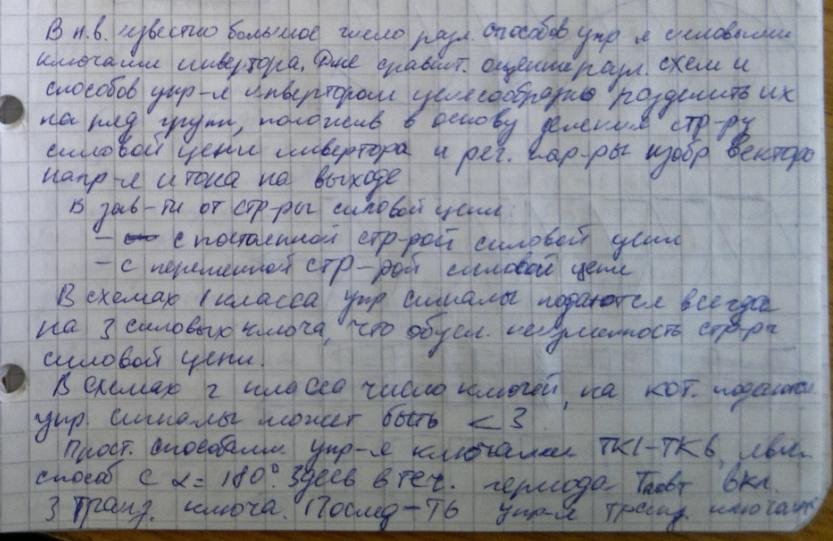 В н.в. известно большое число разл. способов упр-я силовыми
ключами инвертора. Для сравнит. оценки разл. схем и
способов упр-я инвертором целесообразно разделить их
на ряд групп, положив в основу деления стр-ру
силовой цепи инвертора и рег. пар-ры изобр вектора
напр-я и тока на выходе
В зав-ти от стр-ры силовой цепи:
- с постоянной стр-рой силовой цепи
- с переменной стр-рой силовой цепи
В схемах 1 класса упр сигналы подаются всегда
на 3 силовых ключа, что обусл. неизменность стр-ры
силовой цепи.
В схемах 2 класса число ключей, на кот. подаются
упр. сигналы может быть < 3
Прост. способами упр-я ключами ТК1-ТК6, явл.
способ с α = 180°. Здесь в теч. периода Тповт вкл.
3 транз. ключа. Послед-ть упр-я транз. ключами